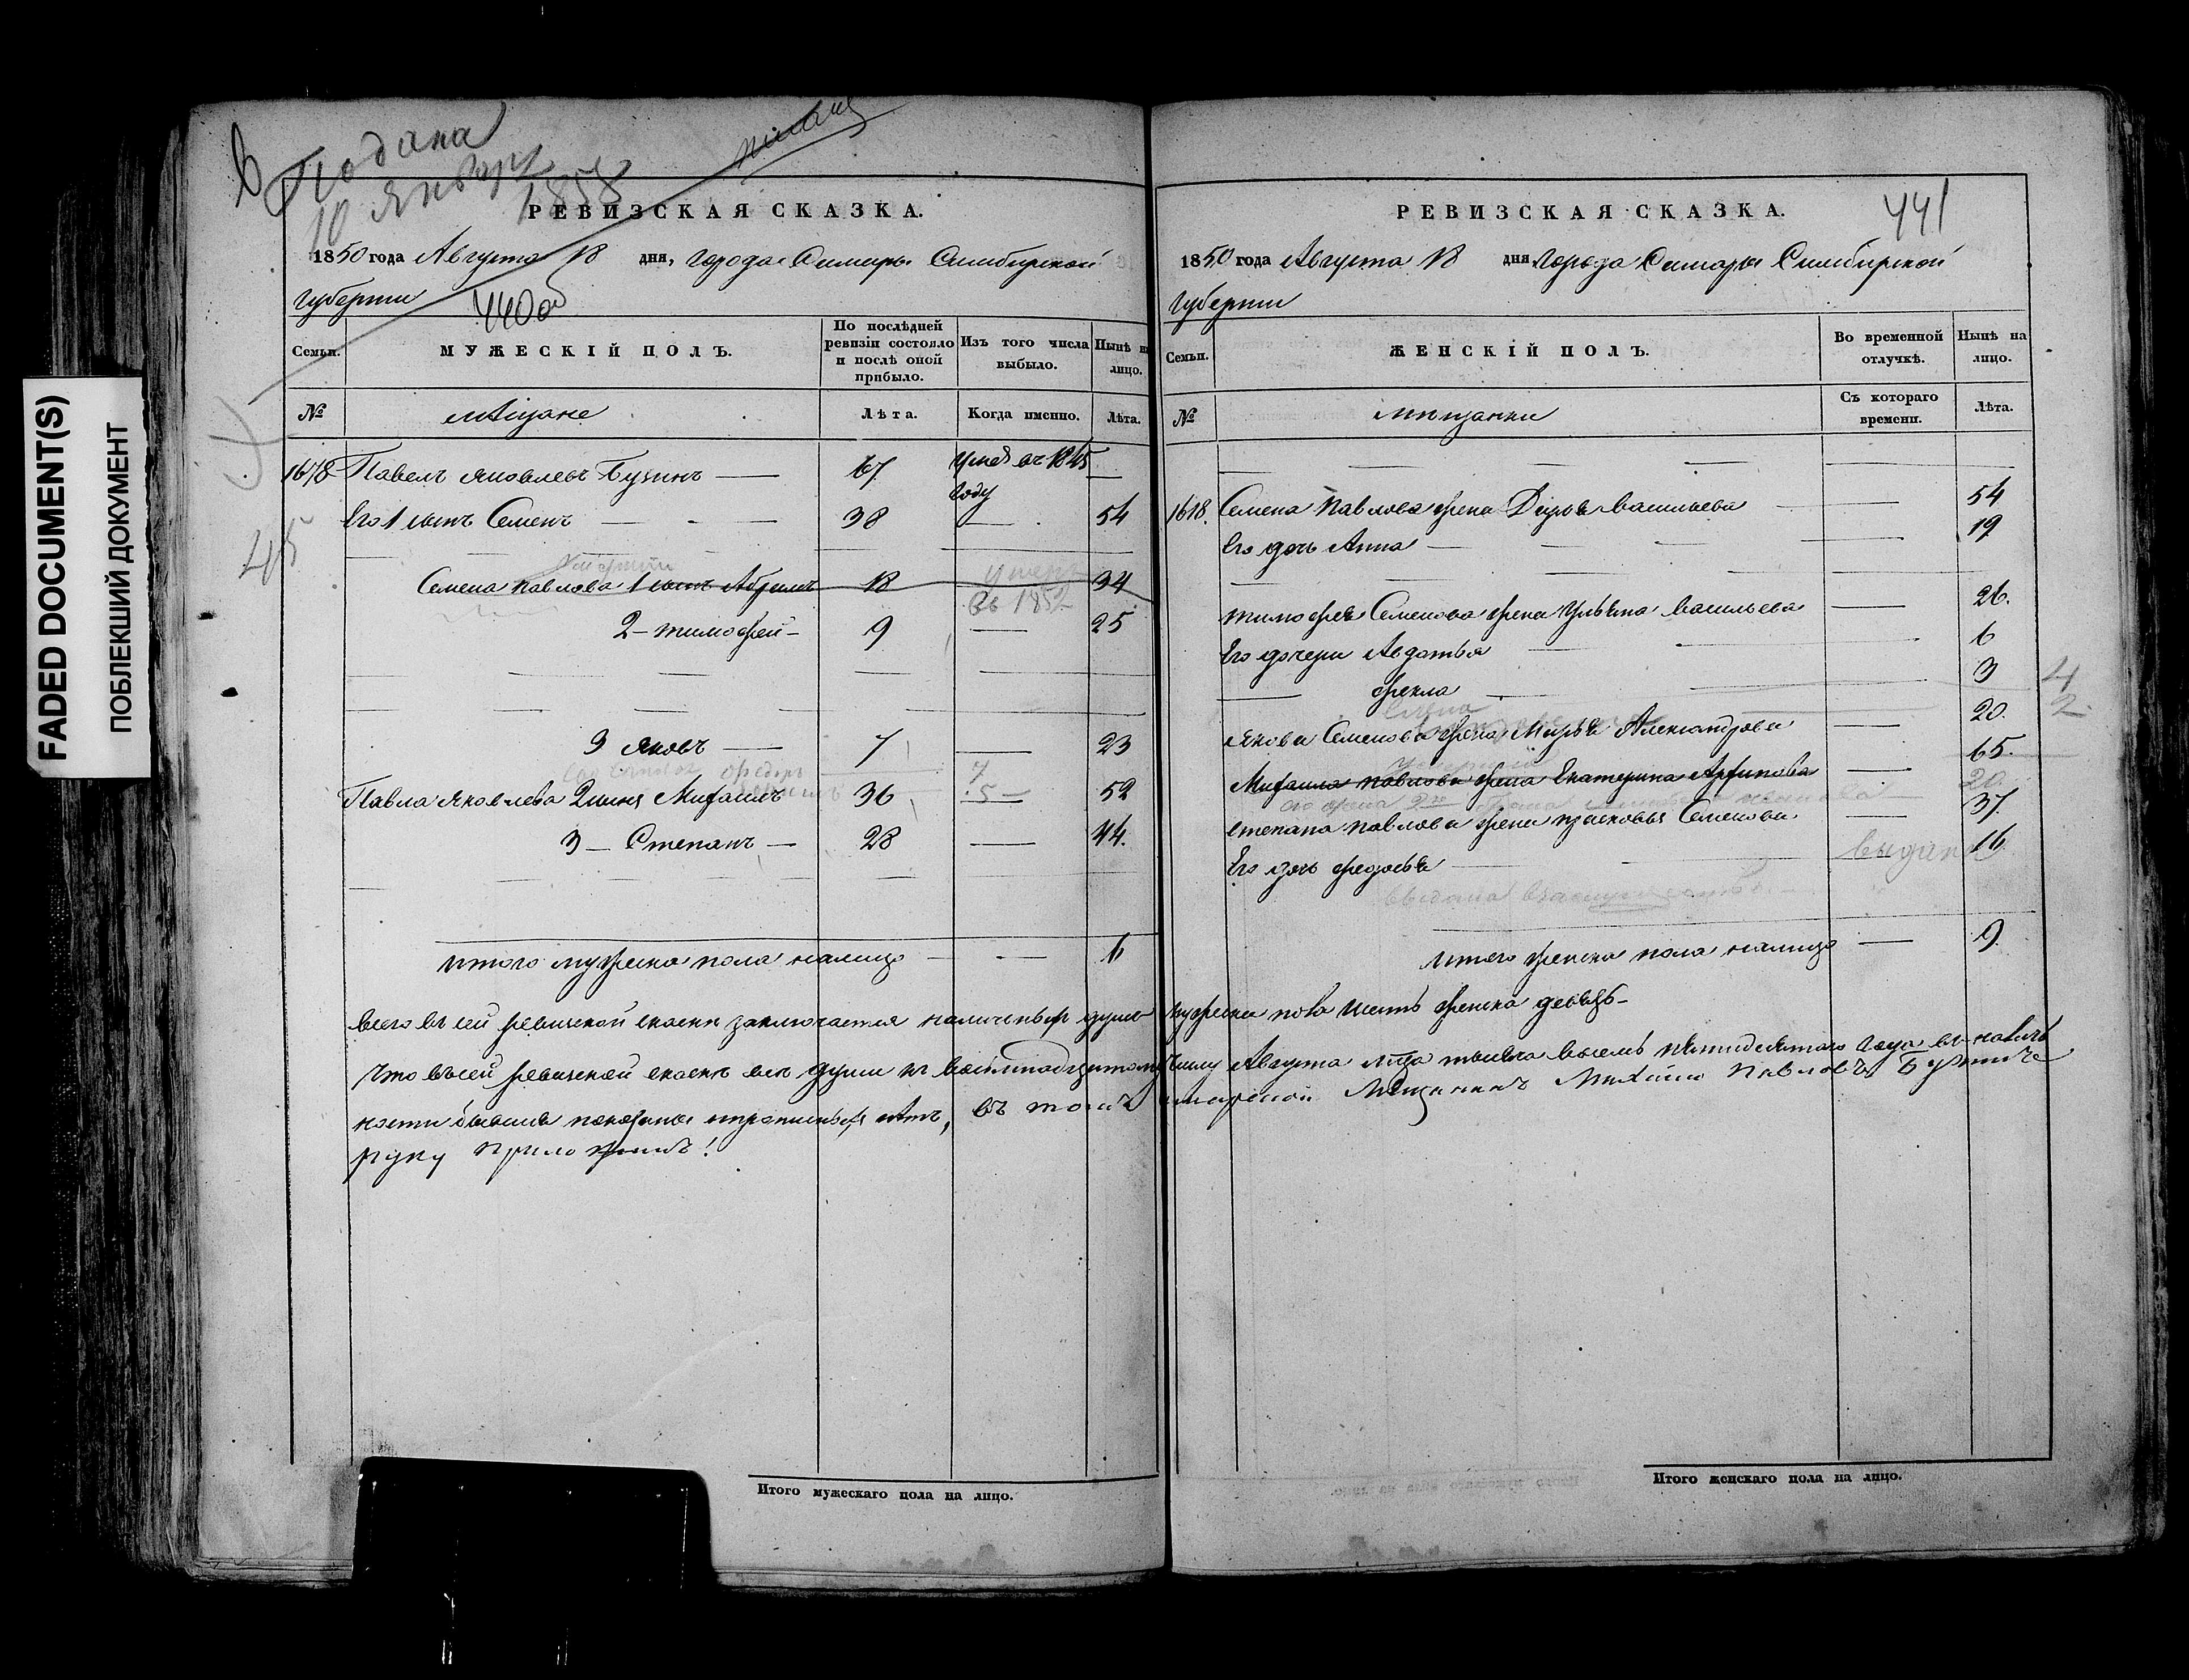 FADED DOCUMENT(S)
ПОБЛЕКШИЙ ДОКУМЕНТ
Подана
10 Января
1858
440 об
РЕВИЗСКАЯ СКАЗКА.
1850 года Августа 18 дня, города Самары Симбирской
губернии
Семьи.
МУЖЕСКІЙ ПОЛЪ.
По послѣдней ревизіи состояло и послѣ оной прибыло.
Изъ того числа выбыло.
Нынѣ на лицо.
№
мѣщане
Лѣта.
Когда именно.
Лѣта.
1678 Павелъ Яковлевъ 67 умеръ въ 1845 году —
Его 1 сынъ Семенъ — 38 — 54
Семена Павлова 1 сынъ Абрамъ 18 умеръ въ 185 34
2 - Тимофей - 9 — 25
3 Яковъ — 7 — 23
Федоръ
Павла Яковлева 2 сынъ Михаилъ 36 5 — 52
3 — Степанъ — 28 — 44.
итого мужеска пола налицо — 6
Итого мужескаго пола на лицо.
441
РЕВИЗСКАЯ СКАЗКА.
1850 года Августа 18 дня города Самары Симбирской
губернии
Семьи.
ЖЕНСКІЙ ПОЛЪ.
Во временной отлучкѣ.
Нынѣ на лицо.
№
мещанки
Съ котораго времени.
Лѣта.
Семена Павлова жена Дарья Васильева — 54
Его дочь Анна — 19
Тимофея Семенова жена Ульяна Васильева — 26.
Его дочери Авдотья — 6
— Фекла — 3
4
2
Якова Семенова жена Марья Александрова — 20.
Михаила Павлова жена Екатерина — 65.
20
его жена 2я
Степана Павлова жена Прасковья Семенова — 37.
Его дочь Федосья — выдана 16
выдана в замужество
итого женска пола налицо — 9
всего въ сей ревизской сказке заключается наличныхъ душъ мужска пола шесть женска девять
что въ сей ревизской сказке все души к восемнадцатому числу Августа тысяча восемь пятидесятого года в налич
ности бывшия показаны и прописныхъ нетъ, въ томъ самарской Мещанинъ Михайло Павловъ
руку приложилъ!
Итого женскаго пола на лицо.